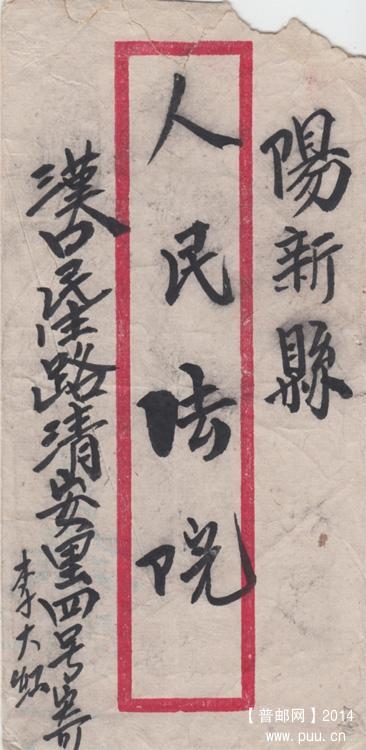 陽新縣
人民法院
漢口民生路清安里四号寄
李大
【普邮网】2014
www.puu.cn